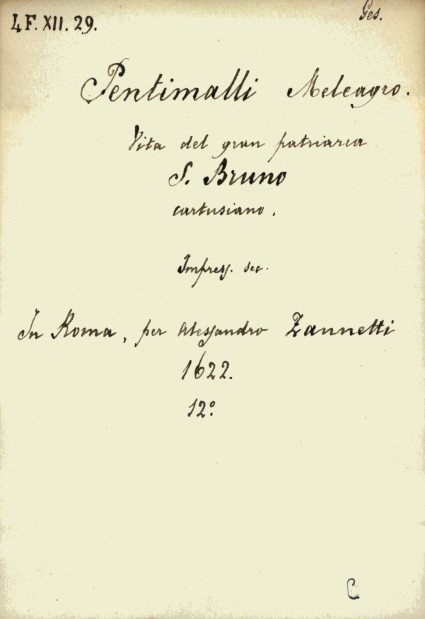 4F.XII.29.
Ges.
Pentimalli Meleagro.
Vita del gran patriarca
S. Bruno
cartusiano.
Impress. sec.
In Roma, per Alessandro Zannetti
1622.
12º
C